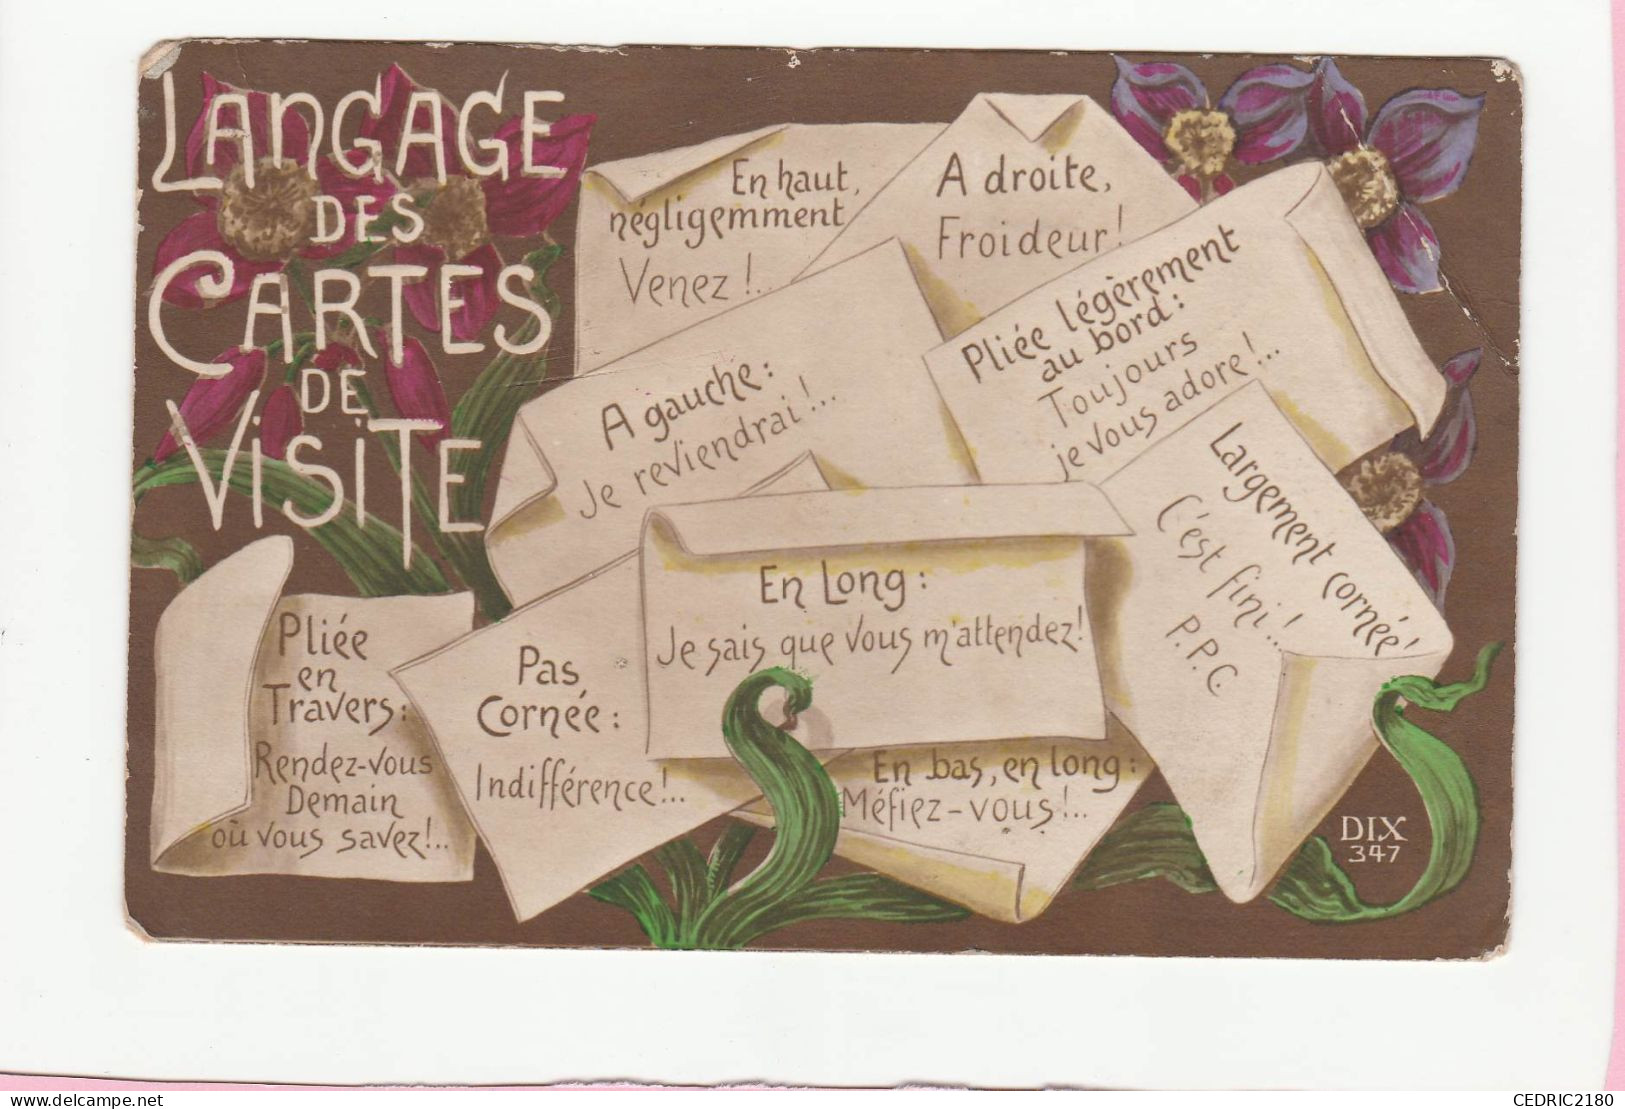 LANGAGE
DES
CARTES
DE
VISITE
En haut,
négligemment
Venez !..
A droite,
Froideur!
A gauche :
Je reviendrai !..
Pliée légèrement
au bord :
Toujours
je vous adore !..
Largement cornée
C'est fini !..
P.P.C.
En Long :
Je sais que vous m'attendez!
Pliée
en
Travers :
Rendez-vous
Demain
où vous savez !..
Pas
Cornée :
Indifférence !..
En bas, en long :
Méfiez-vous !..
DIX
347
delcampe.net
CEDRIC2180